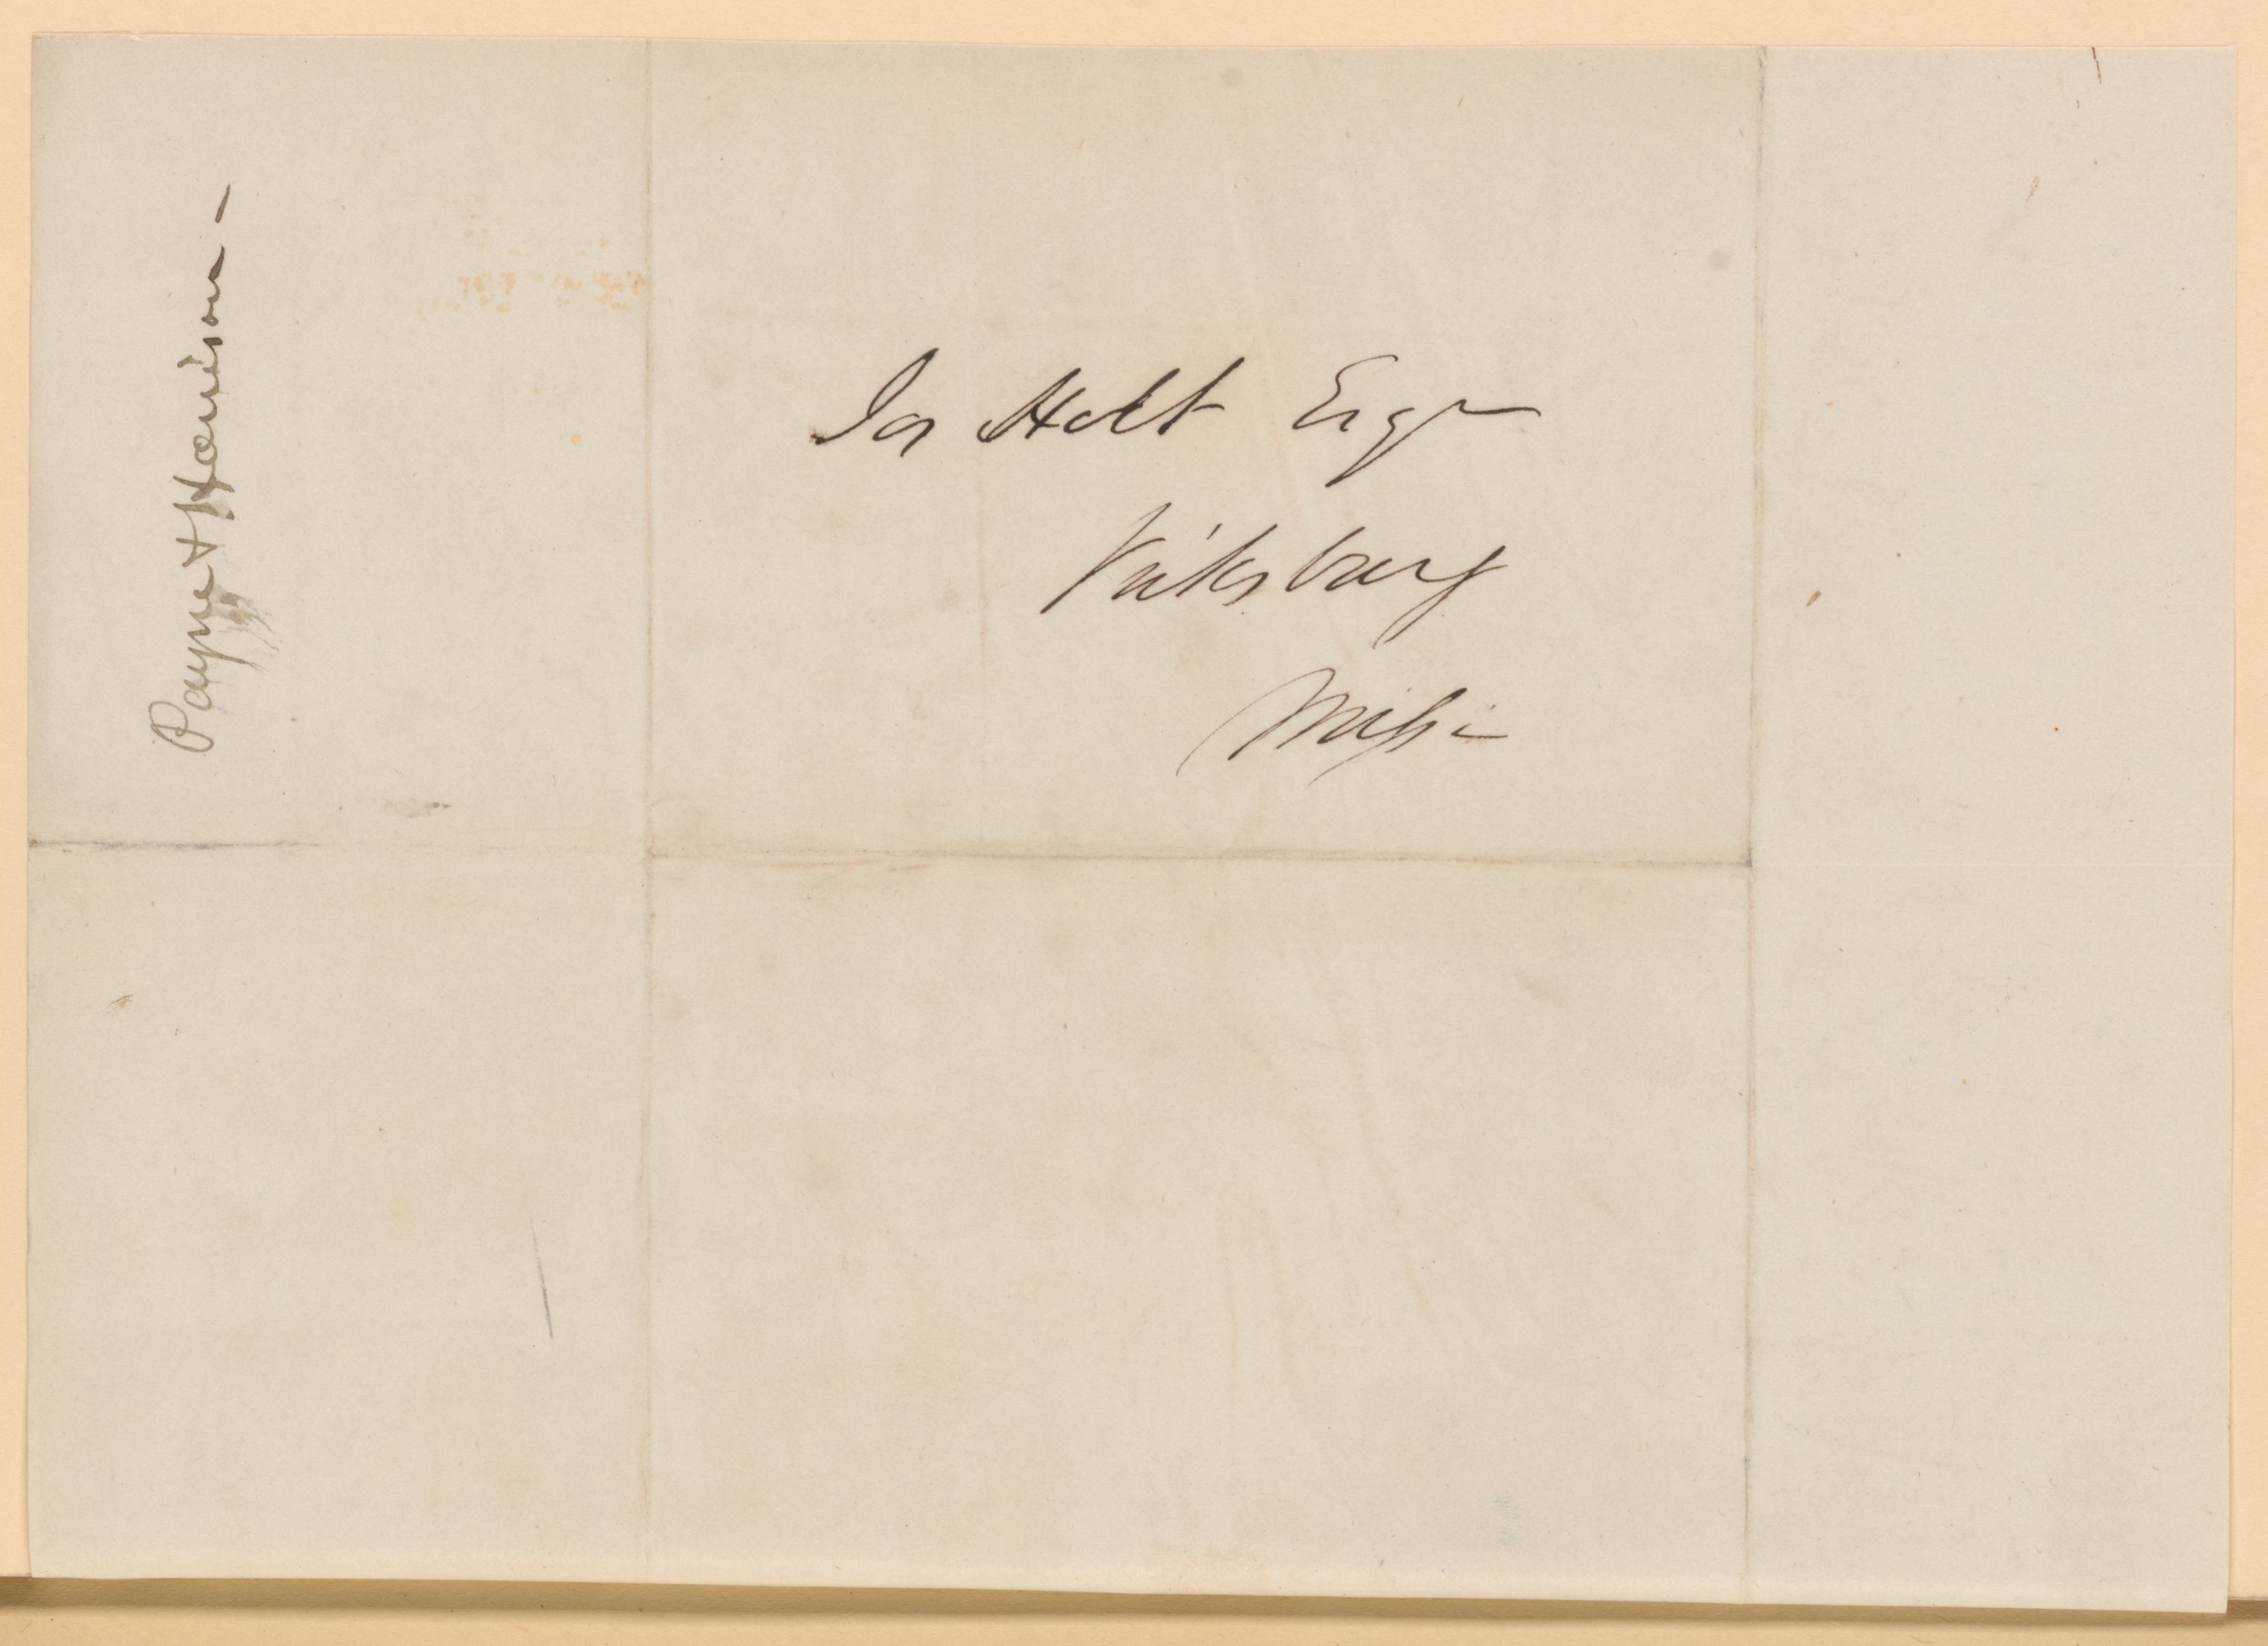 Payne & Harrison -
Jos Holt Esqr
Vicksburg
Missi